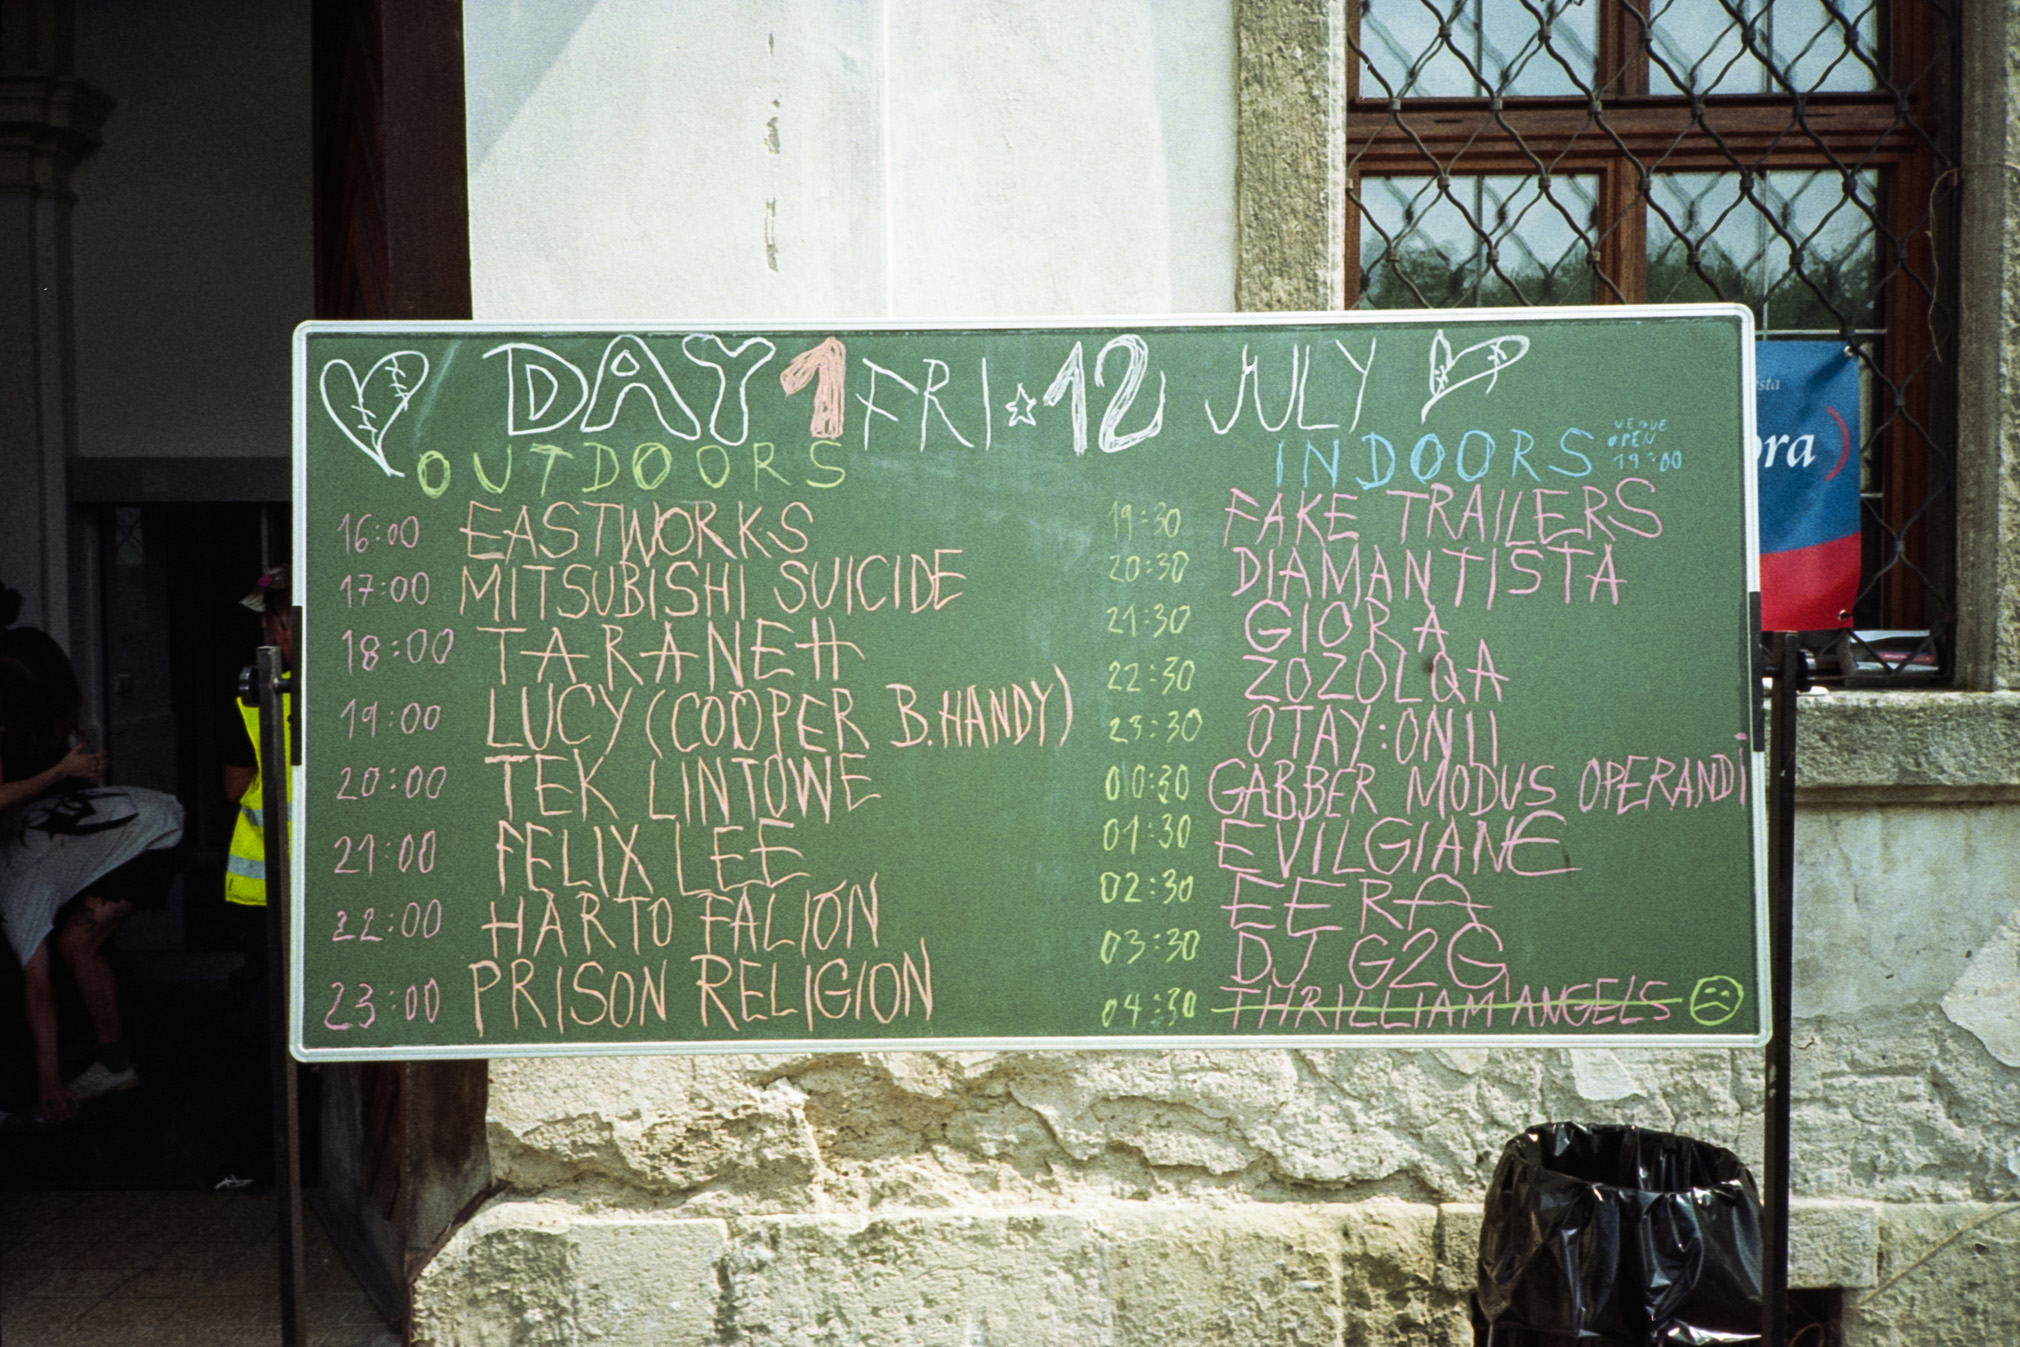 DAY 1 FRI ☆ 12 JULY
OUTDOORS
16:00 EASTWORKS
17:00 MITSUBISHI SUICIDE
18:00 TARANEH
19:00 LUCY (COOPER B. HANDY)
20:00 TEK LINTOWE
21:00 FELIX LEE
22:00 HARTO FALION
23:00 PRISON RELIGION
INDOORS
VENUE
OPEN
19:00
19:30 FAKE TRAILERS
20:30 DIAMANTISTA
21:30 GIORA
22:30 ZOZOLQA
23:30 OTAY:ONII
00:30 GABBER MODUS OPERANDI
01:30 EVILGIANE
02:30 EERA
03:30 DJ G2G
04:30 THRILLIAM ANGELS
ora)